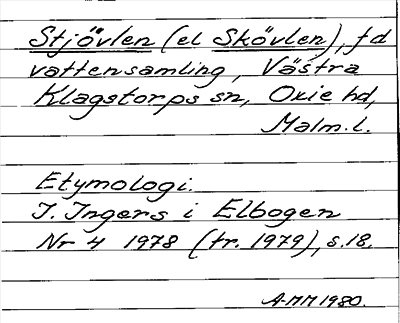 Stjövlen (el Skövlen), fd
vattensamling, Västra
Klagstorps sn, Oxie hd,
Malm. l.
Etymologi.
I. Ingers i Elbogen
Nr 4 1978 (tr. 1979), s. 18.
A-MM 1980.